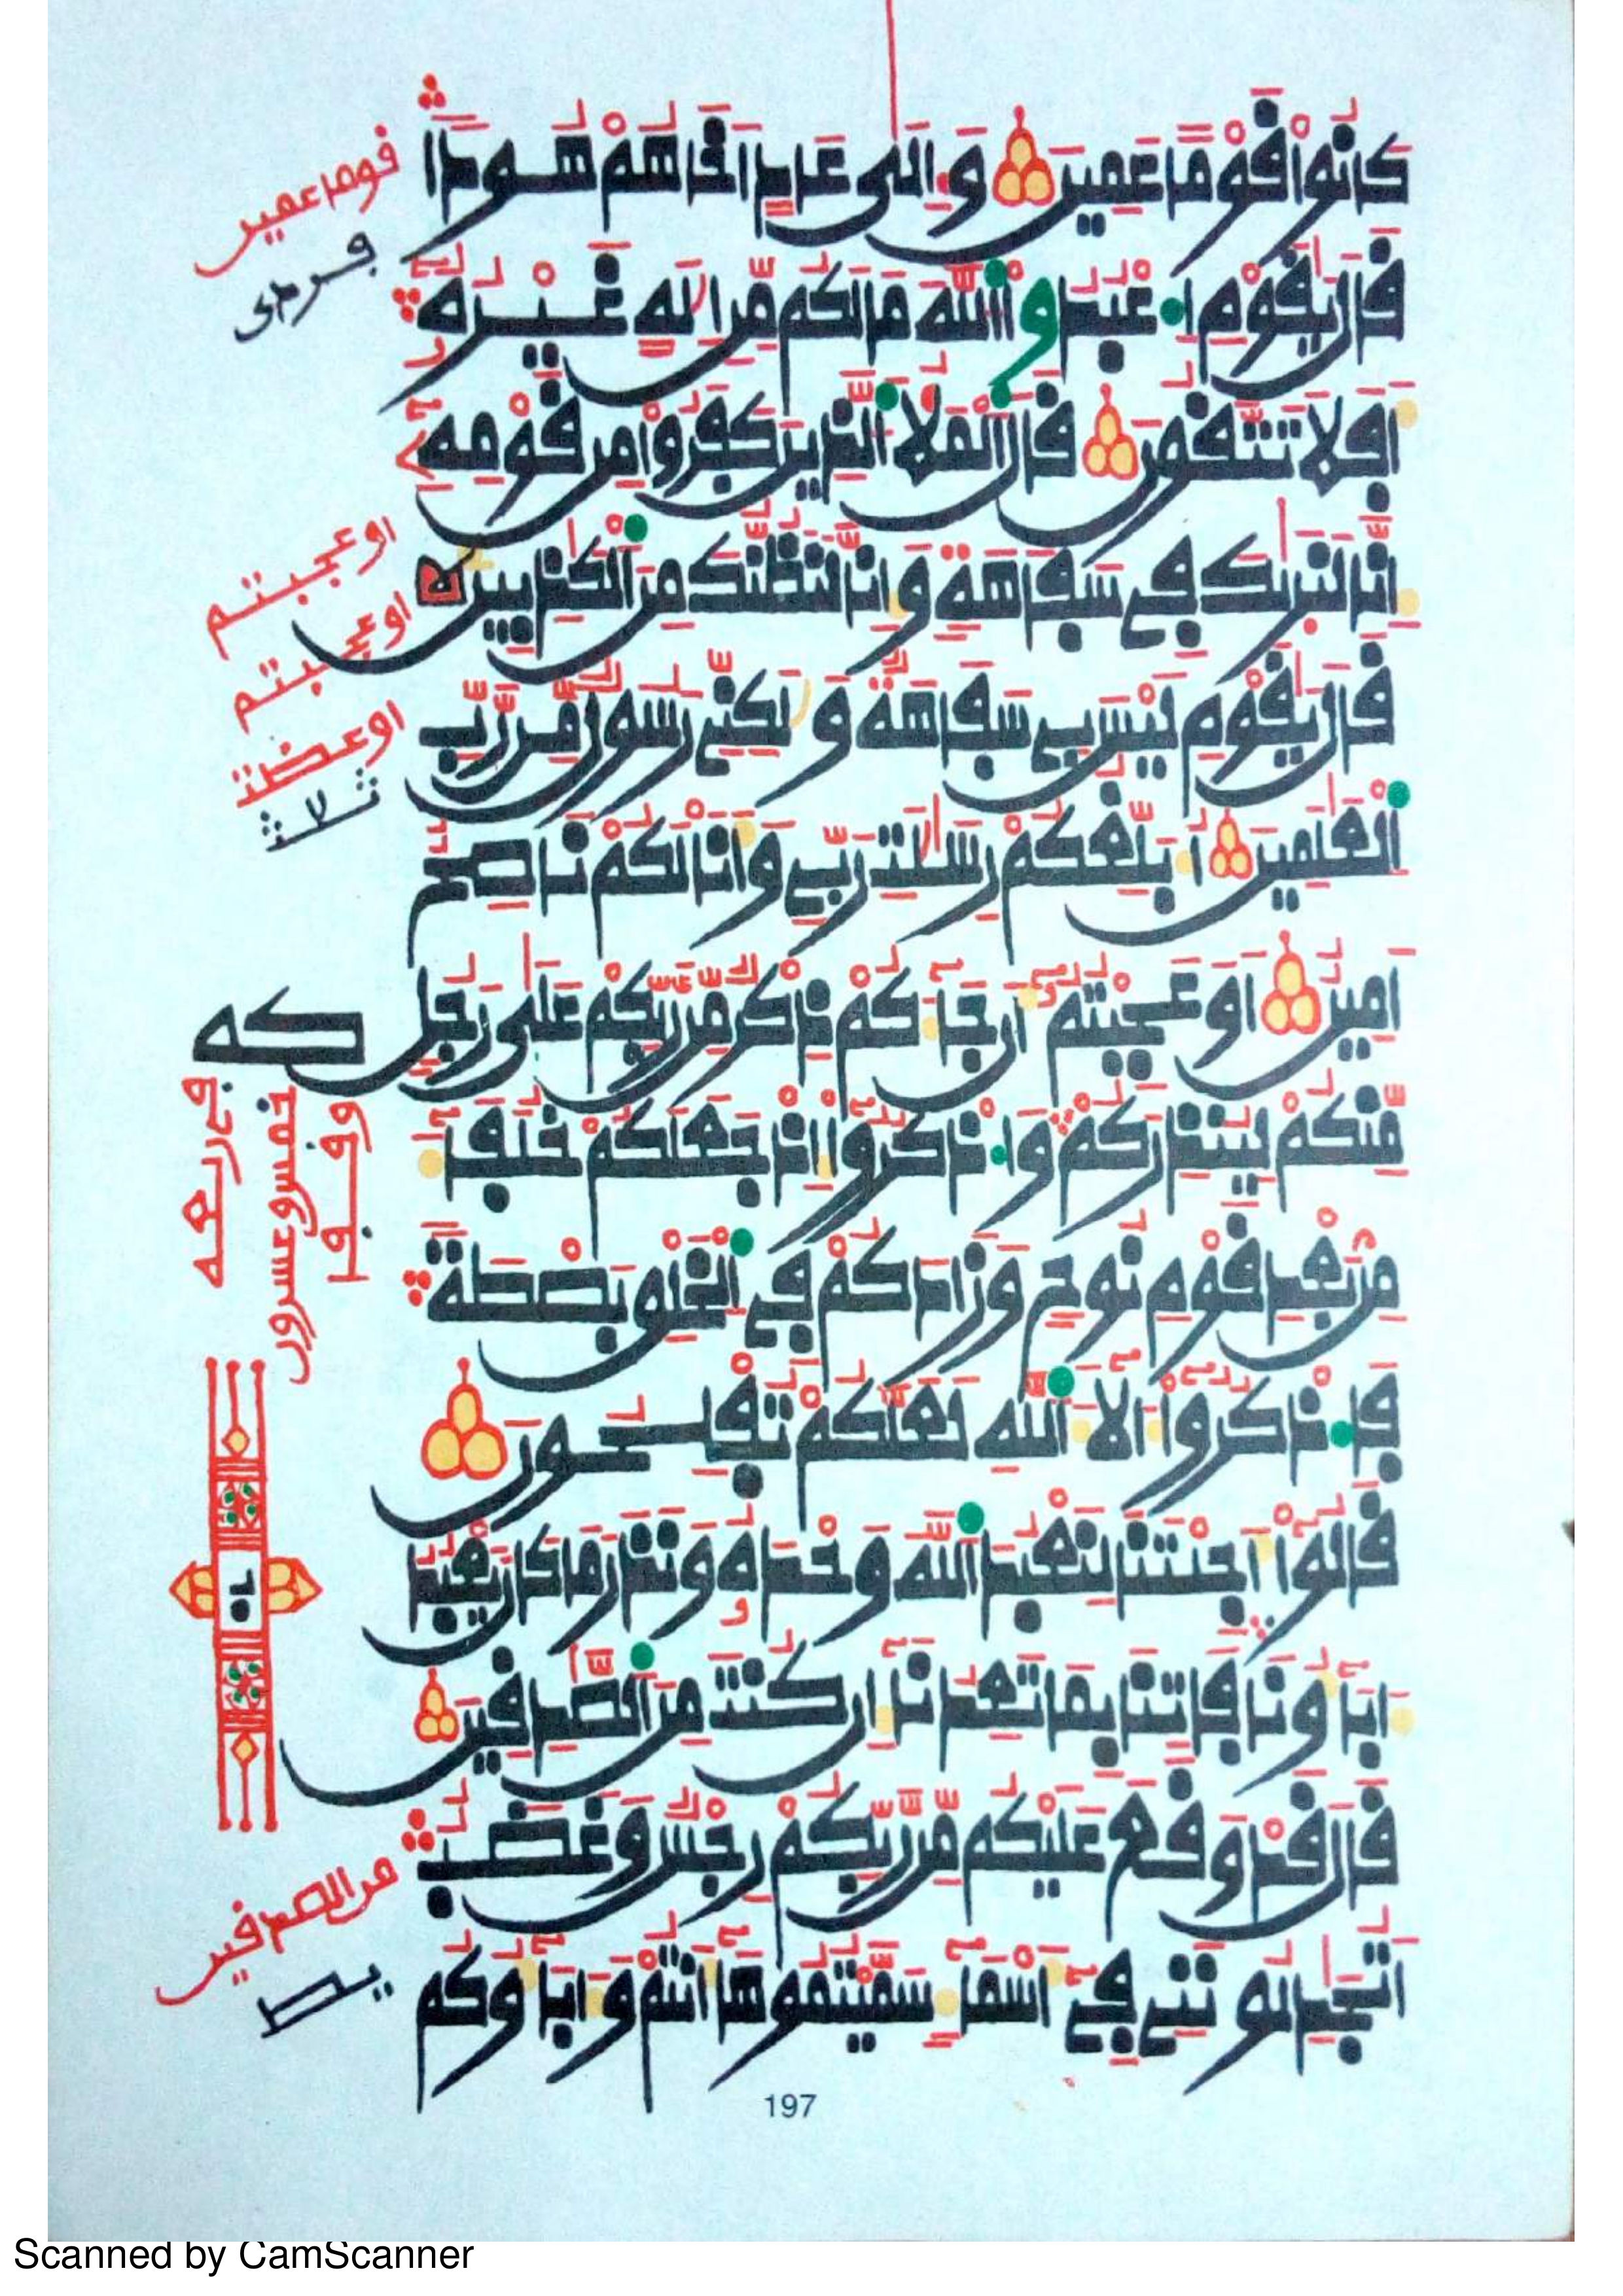 كَانُواْ قَوْمًا عَمِينَ وَإِلَىٰ عَادٍ اَخَاهُمْ هُودًا
قَالَ يَٰقَوْمِ اِ عْبُدُواْ اُللَّهَ مَا لَكُم مِّنِ اِلَٰهٍ غَيْرُهُۥٓ
أَفَلَا تَتَّقُونَ قَالَ اَلْمَلَأُ اُلذِينَ كَفَرُواْ مِن قَوْمِهِۦٓ
إِنَّا لَنَرَىٰكَ فِے سَفَاهَةٍ وَإِنَّا لَنَظُنُّكَ مِنَ اَلْكَٰذِبِينَ
قَالَ يَٰقَوْمِ لَيْسَ بِے سَفَاهَةٌ وَلَٰكِنِّے رَسُولٌ مِّن رَّبِّ
اِلْعَٰلَمِينَ أُبَلِّغُكُمْ رِسَٰلَٰتِ رَبِّے وَأَنَا لَكُمْ نَاصِحٌ
اَمِينٌ أَوَعَجِبْتُمُۥٓ أَن جَآءَكُمْ ذِكْرٌ مِّن رَّبِّكُمْ عَلَىٰ رَجُلٍ
مِّنكُمْ لِيُنذِرَكُمْ وَا ذْكُرُوٓاْ إِذْ جَعَلَكُمْ خُلَفَآءَ
مِنۢ بَعْدِ قَوْمِ نُوحٍ وَزَادَكُمْ فِے اِلْخَلْقِ بَصْطَةً
فَا ذْكُرُوٓاْ ءَالَآءَ اَللَّهِ لَعَلَّكُمْ تُفْلِحُونَ
قَالُوٓاْ أَجِئْتَنَا لِنَعْبُدَ اَللَّهَ وَحْدَهُۥ وَنَذَرَ مَا كَانَ يَعْبُدُ
ءَابَآؤُنَا فَاتِنَا بِمَا تَعِدُنَآ إِن كُنتَ مِنَ اَلصَّٰدِقِينَ
قَالَ قَدْ وَقَعَ عَلَيْكُم مِّن رَّبِّكُمْ رِجْسٌ وَغَضَبٌ
اَتُجَٰدِلُونَنِے فِےٓ أَسْمَآءٍ سَمَّيْتُمُوهَآ أَنتُمْ وَءَابَآؤُكُم
قوما عمين
اوعجبتم
اوعجبتم
من الصدقين
197
Scanned by CamScanner